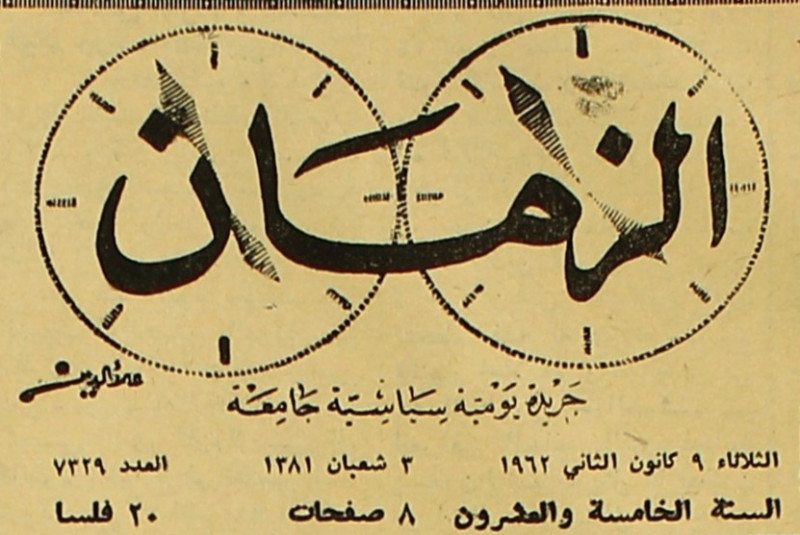 الزمان
علاء الدين
جريدة يومية سياسية جامعة
الثلاثاء ٩ كانون الثاني ١٩٦٢ ٣ شعبان ١٣٨١ العدد ٧٣٢٩
السنة الخامسة والعشرون ٨ صفحات ٢٠ فلسا